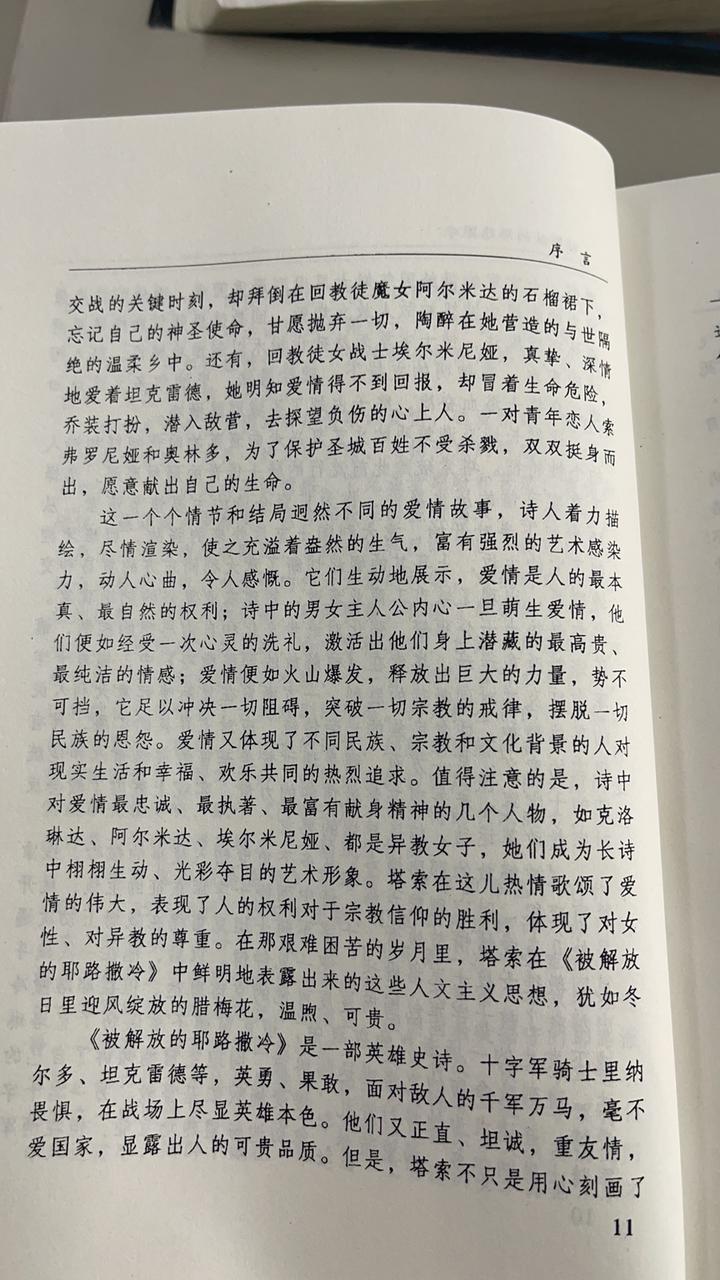 序 言
交战的关键时刻，却拜倒在回教徒魔女阿尔米达的石榴裙下，
忘记自己的神圣使命，甘愿抛弃一切，陶醉在她营造的与世隔
绝的温柔乡中。还有，回教徒女战士埃尔米尼娅，真挚、深情
地爱着坦克雷德，她明知爱情得不到回报，却冒着生命危险，
乔装打扮，潜入敌营，去探望负伤的心上人。一对青年恋人索
弗罗尼娅和奥林多，为了保护圣城百姓不受杀戮，双双挺身而
出，愿意献出自己的生命。
这一个个情节和结局迥然不同的爱情故事，诗人着力描
绘，尽情渲染，使之充溢着盎然的生气，富有强烈的艺术感染
力，动人心曲，令人感慨。它们生动地展示，爱情是人的最本
真、最自然的权利；诗中的男女主人公内心一旦萌生爱情，他
们便如经受一次心灵的洗礼，激活出他们身上潜藏的最高贵、
最纯洁的情感；爱情便如火山爆发，释放出巨大的力量，势不
可挡，它足以冲决一切阻碍，突破一切宗教的戒律，摆脱一切
民族的恩怨。爱情又体现了不同民族、宗教和文化背景的人对
现实生活和幸福、欢乐共同的热烈追求。值得注意的是，诗中
对爱情最忠诚、最执著、最富有献身精神的几个人物，如克洛
琳达、阿尔米达、埃尔米尼娅、都是异教女子，她们成为长诗
中栩栩生动、光彩夺目的艺术形象。塔索在这儿热情歌颂了爱
情的伟大，表现了人的权利对于宗教信仰的胜利，体现了对女
性、对异教的尊重。在那艰难困苦的岁月里，塔索在《被解放
的耶路撒冷》中鲜明地表露出来的这些人文主义思想，犹如冬
日里迎风绽放的腊梅花，温煦、可贵。
《被解放的耶路撒冷》是一部英雄史诗。十字军骑士里纳
尔多、坦克雷德等，英勇、果敢，面对敌人的千军万马，毫不
畏惧，在战场上尽显英雄本色。他们又正直、坦诚，重友情，
爱国家，显露出人的可贵品质。但是，塔索不只是用心刻画了
11